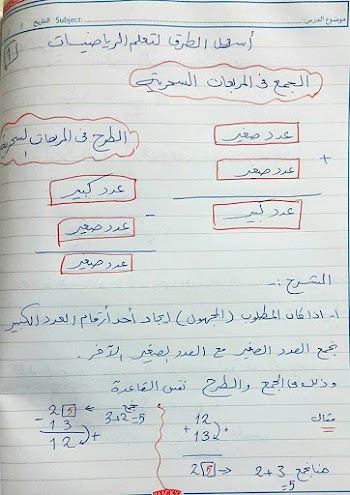 موضوع الدرس: Subject: التاريخ
أسهل الطرق لتعلم الرياضيات
1
الجمع في المربعات السحرية
الطرح في المربعات السحرية
عدد صغير
+
عدد صغير
عدد كبير
عدد كبير
-
عدد صغير
عدد صغير
الشرح :-
1- اذا كان المطلوب (المجهول) ايجاد أحد أرقام العدد الكبير
نجمع العدد الصغير مع العدد الصغير الآخر.
وذلك في الجمع والطرح نفس القاعدة
مثال
12
+ 13 +
2 5 → 2+3 =5
هنا نجمع
2 5 ← نجمع
3+2=5
- 13
12 +
LUCKY